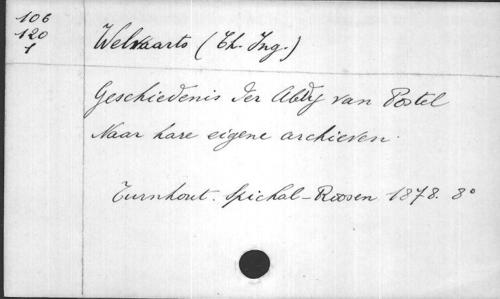 106
120
1
Welvaarts (Th. Ing.)
Geschiedenis der Abdij van Postel
Naar hare eigene archieven.
Turnhout. Spichal-Roosen 1878. 8°